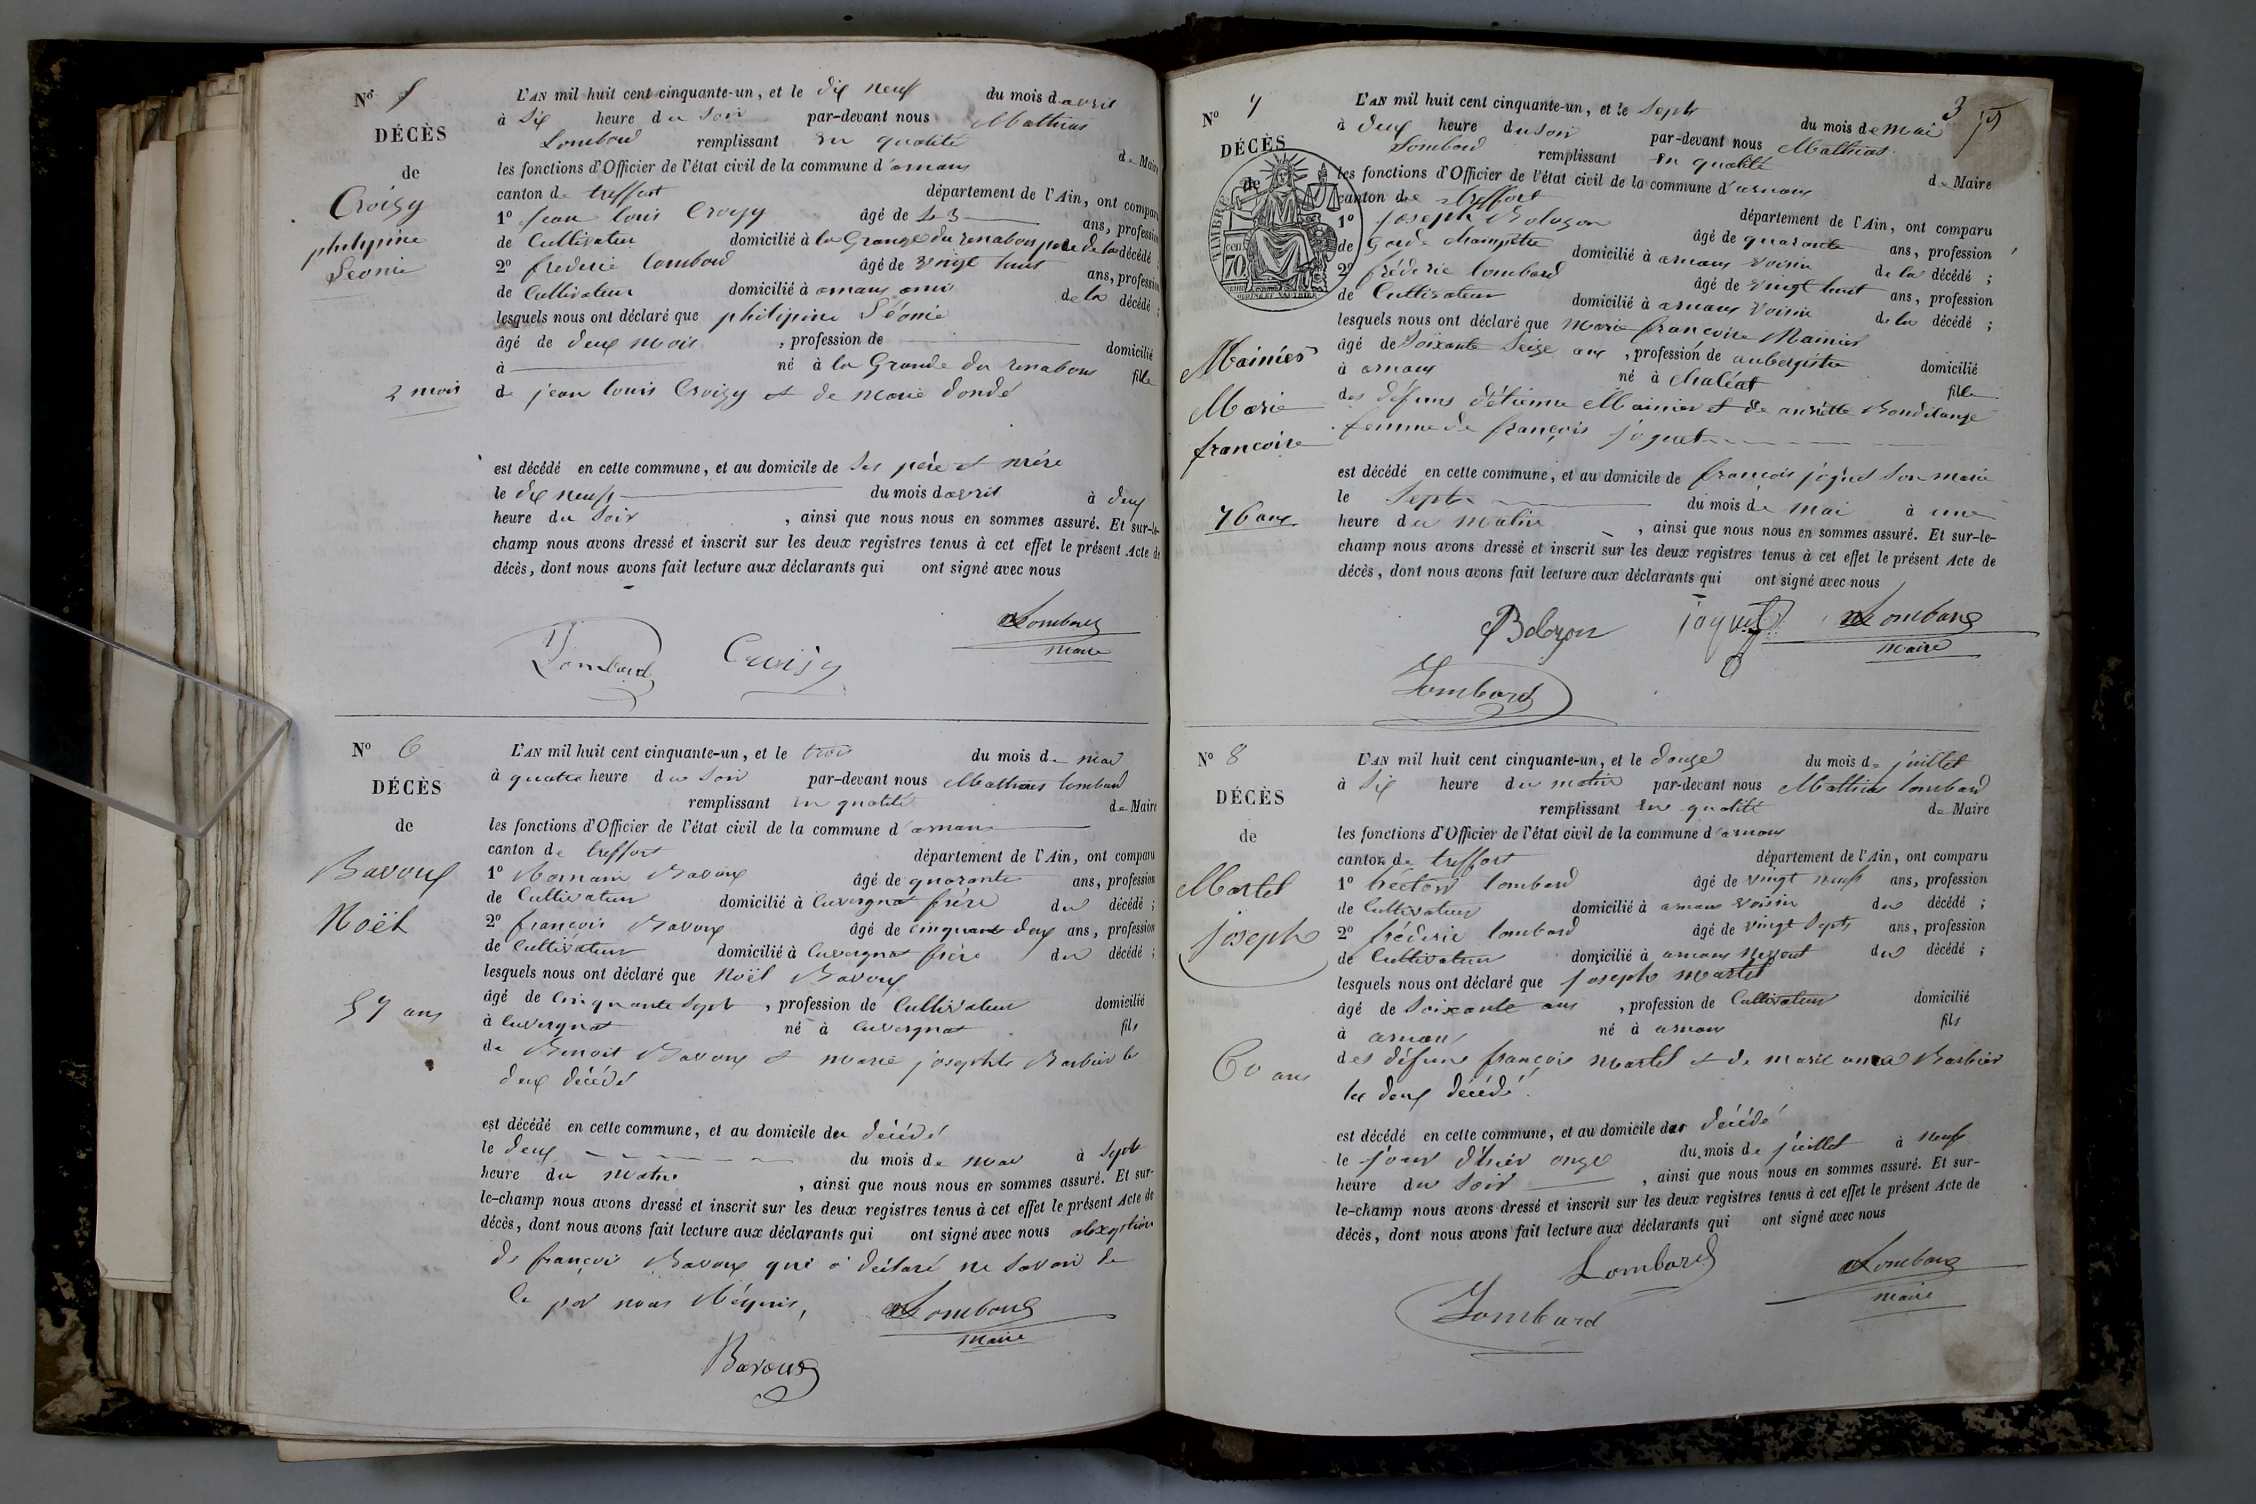 Nº 5
DÉCÈS
de
Croizy
philipine
Léonie
2 mois
L'AN mil huit cent cinquante-un, et le dix neuf du mois d avril
à Six heure du Soir par-devant nous Mathias
Lombard remplissant en qualité de Maire
les fonctions d'Officier de l'état civil de la commune d'arnans
canton de treffort département de l'Ain, ont comparu
1º jean louis Croizy âgé de 43 ans, profession
de Cultivateur domicilié à la Grange du renabous père de la décédé ;
2º frederic lombard âgé de vingt huit ans, profession
de Cultivateur domicilié à arnans ami de la décédé ;
lesquels nous ont déclaré que philipine Léonie
âgé de deux mois , profession de domicilié
à né à la Grande du renabous fille
de jean louis Croizy et de Marie dondé
est décédé en cette commune, et au domicile de Ses père et mère
le dix neuf du mois d avril à deux
heure du Soir , ainsi que nous nous en sommes assuré. Et sur-le-
champ nous avons dressé et inscrit sur les deux registres tenus à cet effet le présent Acte de
décès, dont nous avons fait lecture aux déclarants qui ont signé avec nous
Lombard Croizy Lombard
maire
Nº 6
DÉCÈS
de
Bavoux
Noël
57 ans
L'AN mil huit cent cinquante-un, et le trois du mois de mai
à quatre heure du Soir par-devant nous Mathias lombard
remplissant en qualité de Maire
les fonctions d'Officier de l'état civil de la commune d'arnans
canton de treffort département de l'Ain, ont comparu
1º Romain Bavoux âgé de quarante ans, profession
de Cultivateur domicilié à Cuvergnat frère du décédé ;
2º françois Bavoux âgé de cinquante deux ans, profession
de Cultivateur domicilié à Cuvergnat frère du décédé ;
lesquels nous ont déclaré que Noël Bavoux
âgé de Cinquante Sept , profession de Cultivateur domicilié
à Cuvergnat né à Cuvergnat fils
de Benoit Bavoux et marie josephte Barbier les
deux décédé
est décédé en cette commune, et au domicile du décédé
le deux du mois de mai à Sept
heure du Matin , ainsi que nous nous en sommes assuré. Et sur-
le-champ nous avons dressé et inscrit sur les deux registres tenus à cet effet le présent Acte de
décès, dont nous avons fait lecture aux déclarants qui ont signé avec nous
de françois Bavoux qui a déclaré ne Savoir de
Ce par nous Réquis, Lombard
maire
Bavoux
3
Nº 7
DÉCÈS
de
TIMBRE
CEN. 70
Mainier
Marie
françoise
76 ans
L'AN mil huit cent cinquante-un, et le Sept du mois de Mai
à deux heure du Soir par-devant nous Mathias
Lombard remplissant en qualité de Maire
les fonctions d'Officier de l'état civil de la commune d'arnans
canton de treffort département de l'Ain, ont comparu
1º joseph Bolozon âgé de quarante ans, profession
de Garde champêtre domicilié à arnans voisin de la décédé ;
2º fréderic lombard âgé de vingt huit ans, profession
de Cultivateur domicilié à arnans voisin de la décédé ;
lesquels nous ont déclaré que Marie françoise Mainier
âgé de Soixante Seize ans , profession de aubergiste domicilié
à arnans né à Chaléat fille
des défuns d'étienne Mainier et de
femme de françois joguet
est décédé en cette commune, et au domicile de françois joguet Son marie
le Sept du mois de Mai à une
heure du Matin , ainsi que nous nous en sommes assuré. Et sur-le-
champ nous avons dressé et inscrit sur les deux registres tenus à cet effet le présent Acte de
décès, dont nous avons fait lecture aux déclarants qui ont signé avec nous
Bolozon joguet Lombard
maire
Lombard
Nº 8
DÉCÈS
de
Martel
joseph
60 ans
L'AN mil huit cent cinquante-un, et le douze du mois de juillet
à Six heure du matin par-devant nous Mathias lombard
remplissant en qualité de Maire
les fonctions d'Officier de l'état civil de la commune d'arnans
canton de treffort département de l'Ain, ont comparu
1º hector lombard âgé de vingt neuf ans, profession
de Cultivateur domicilié à arnans voisin du décédé ;
2º fréderic lombard âgé de vingt Sept ans, profession
de Cultivateur domicilié à arnans du décédé ;
lesquels nous ont déclaré que joseph martel
âgé de Soixante ans , profession de Cultivateur domicilié
à arnans né à arnans fils
des défuns françois martel et de marie anna Barbier
les deux décédé
est décédé en cette commune, et au domicile du décédé
le jour d'hier onze du mois de juillet à neuf
heure du Soir , ainsi que nous nous en sommes assuré. Et sur-
le-champ nous avons dressé et inscrit sur les deux registres tenus à cet effet le présent Acte de
décès, dont nous avons fait lecture aux déclarants qui ont signé avec nous
Lombard Lombard
maire
Lombard